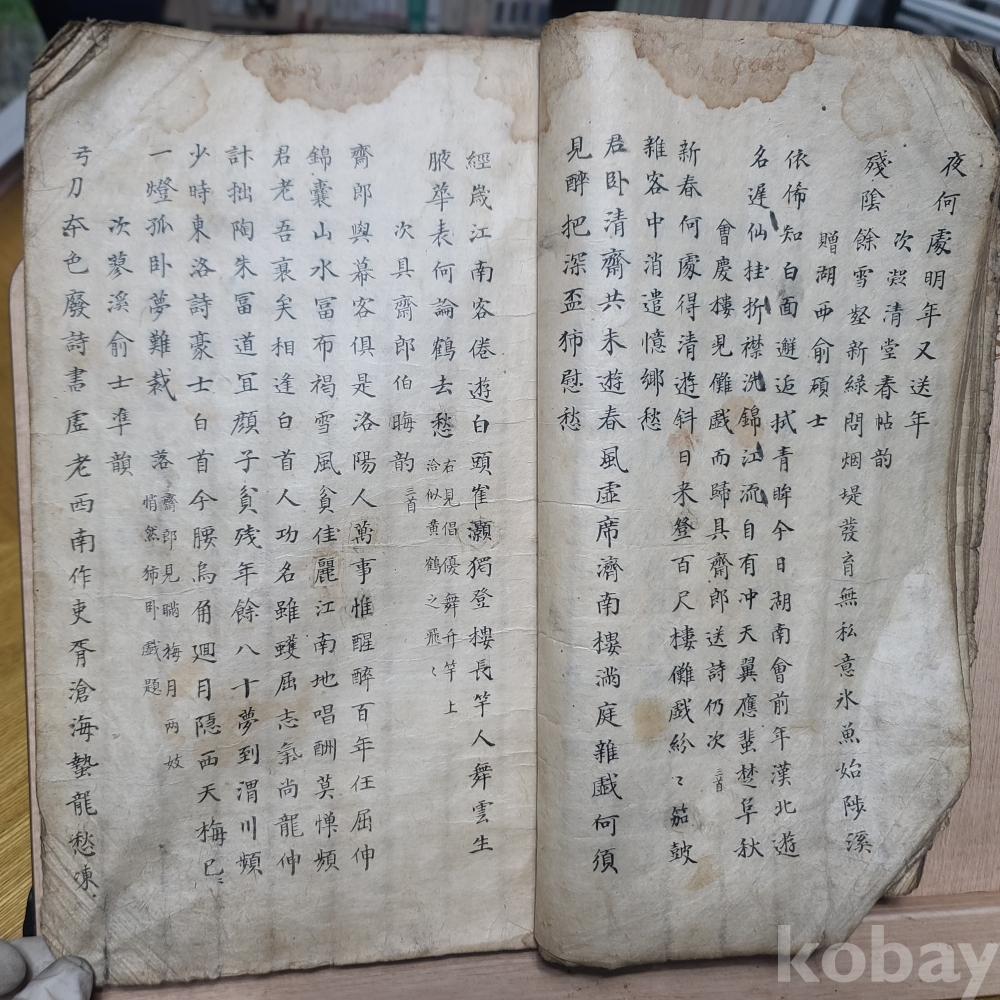 夜何處明年又送年
次凝清堂春帖韵
殘陰餘雪壑新綠問烟堤發育無私意氷魚始陟溪
贈湖西俞碩士
依俙知白面邂逅拭青眸今日湖南會前年漢北遊
名遅仙桂折襟洗錦江流自有冲天翼應蜚楚阜秋
會慶樓見儺戱而歸具齋郎送詩仍次 三首
新春何處得清遊斜日来登百尺樓儺戱紛〻笳皷
雜客中消遣憶鄉愁
君卧清齋共未遊春風虛席濟南樓滿庭雜戱何須
見醉把深盃秭慰愁
經歲江南客倦遊白頭崔灝獨登樓長竿人舞雲生
腋華表何論鶴去愁 右見倡優舞升竿上
洽似黄鶴之飛〻
次具齋郎伯晦韵 三首
齋郎與幕客俱是洛陽人萬事惟醒醉百年任屈伸
錦囊山水冨布褐雪風貧佳麗江南地唱酬莫憚頻
君老吾衰矣相逢白首人功名雖蠖屈志氣尚龍伸
計拙陶朱冨道冝顔子貧残年餘八十夢到渭川頻
少時東洛詩豪士白首今腰烏角廻月隐西天梅已
落齋郎見瞞梅月两妓
一燈孤卧夢難裁 悄然秭卧戱題
次蓼溪俞士準韻
弓刀夲色廢詩書虛老西南作吏胥滄海蟄龍愁凍